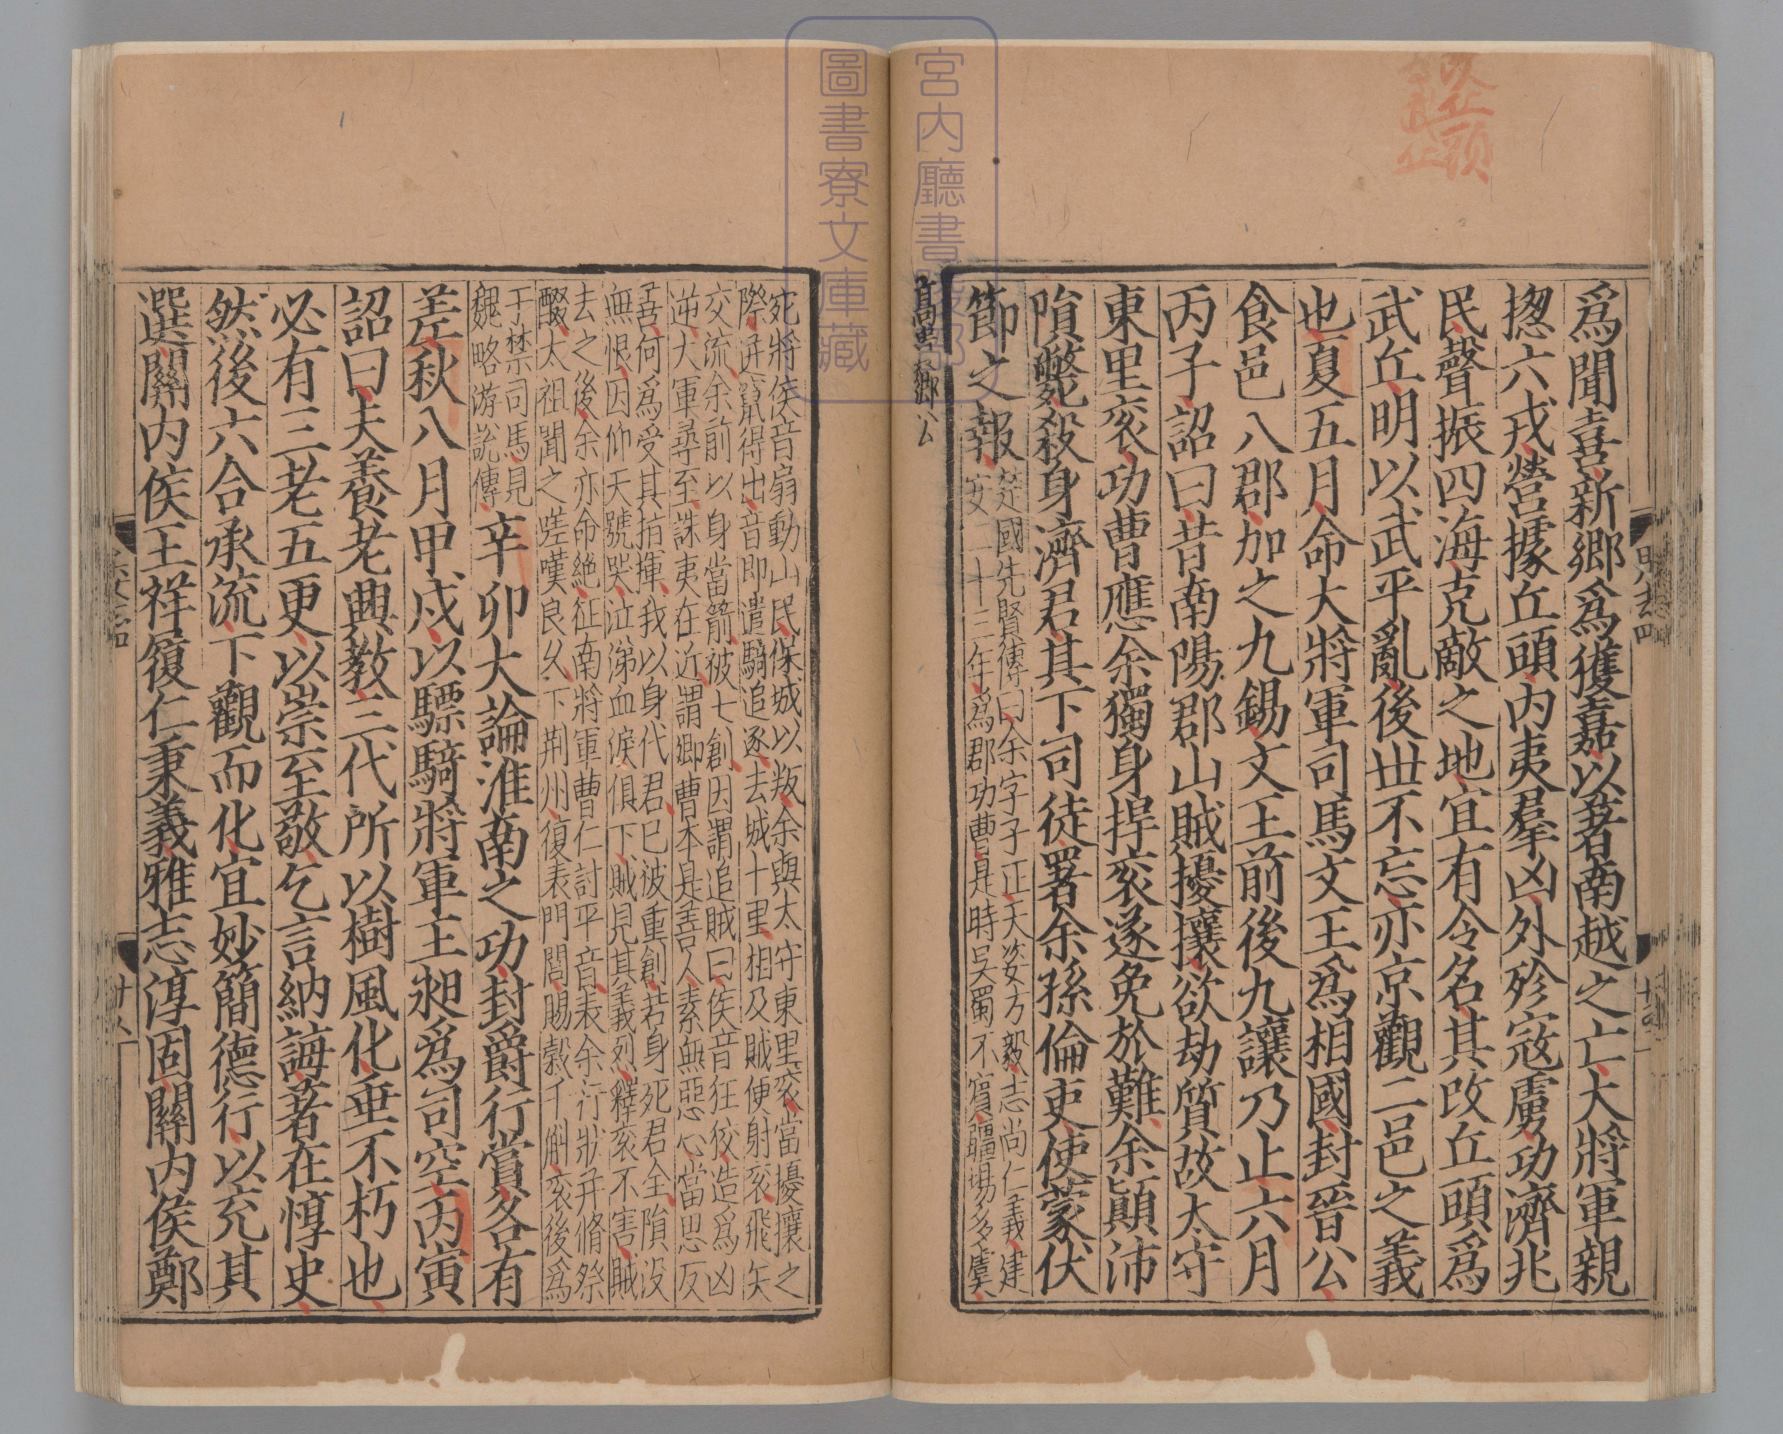 為聞喜新鄉為獲嘉以著南越之亡大將軍親
揔六戎營據丘頭內夷羣凶外殄寇虜功濟兆
民聲振四海克敵之地宜有令名其改丘頭為
武丘明以武平亂後世不忘亦京觀二邑之義
也夏五月命大將軍司馬文王為相國封晉公
食邑八郡加之九錫文王前後九讓乃止六月
丙子詔曰昔南陽郡山賊擾攘欲劫質故太守
東里衮功曹應余獨身捍衮遂免於難余顚沛
隕斃殺身濟君其下司徒署余孫倫吏使蒙伏
節之報
楚國先賢傳曰余字子正天姿方毅志尚仁義建
安二十三年為郡功曹是時吳蜀不賔疆埸多虞
高貴鄉公
宛將侯音扇動山民保城以叛余與太守東里衮當擾攘之
際迸竄得出音即遣騎追逐去城十里相及賊便射衮飛矢
交流余前以身當箭被七創因謂追賊曰侯音狂狡造為凶
逆大軍尋至誅夷在近謂卿曹本是善人素無惡心當思反
善何為受其指揮我以身代君已被重創若身死君全隕沒
無恨因仰天號哭泣涕血淚俱下賊見其義烈釋衮不害賊
去之後余亦命絕征南將軍曹仁討平音表余行狀并脩祭
醊太祖聞之嗟嘆良久下荆州復表門閭賜糓千斛衮後為
于禁司馬見
魏略游說傳
辛卯大論淮南之功封爵行賞各有
差秋八月甲戌以驃騎將軍王昶為司空丙寅
詔曰夫養老興教三代所以樹風化垂不朽也
必有三老五更以崇至敬乞言納誨著在惇史
然後六合承流下觀而化宜妙簡德行以充其
選關內侯王祥履仁秉義雅志淳固關內侯鄭
宮內廳書陵部
圖書寮文庫藏